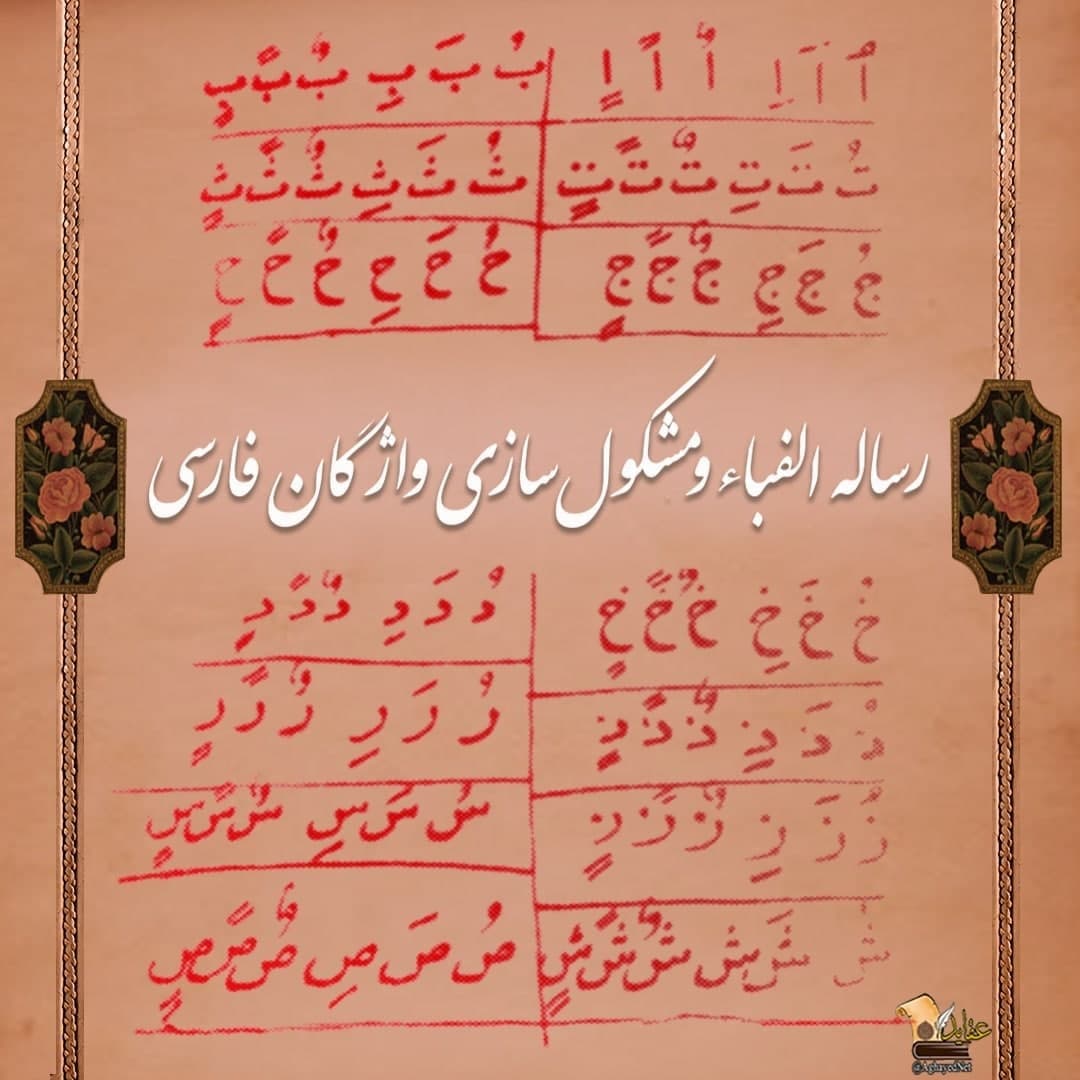 اُ اَ اِ اٌ اً اٍ بُ بَ بِ بٌ بً بٍ
تُ تَ تِ تٌ تً تٍ ثُ ثَ ثِ ثٌ ثً ثٍ
جُ جَ جِ جٌ جً جٍ حُ حَ حِ حٌ حً حٍ
رساله الفباء و مشکول سازی واژگان فارسی
خُ خَ خِ خٌ خً خٍ دُ دَ دِ دٌ دً دٍ
ذُ ذَ ذِ ذٌ ذً ذٍ رُ رَ رِ رٌ رً رٍ
زُ زَ زِ زٌ زً زٍ سُ سَ سِ سٌ سً سٍ
شُ شَ شِ شٌ شً شٍ صُ صَ صِ صٌ صً صٍ
عقاید
@AghayedNet